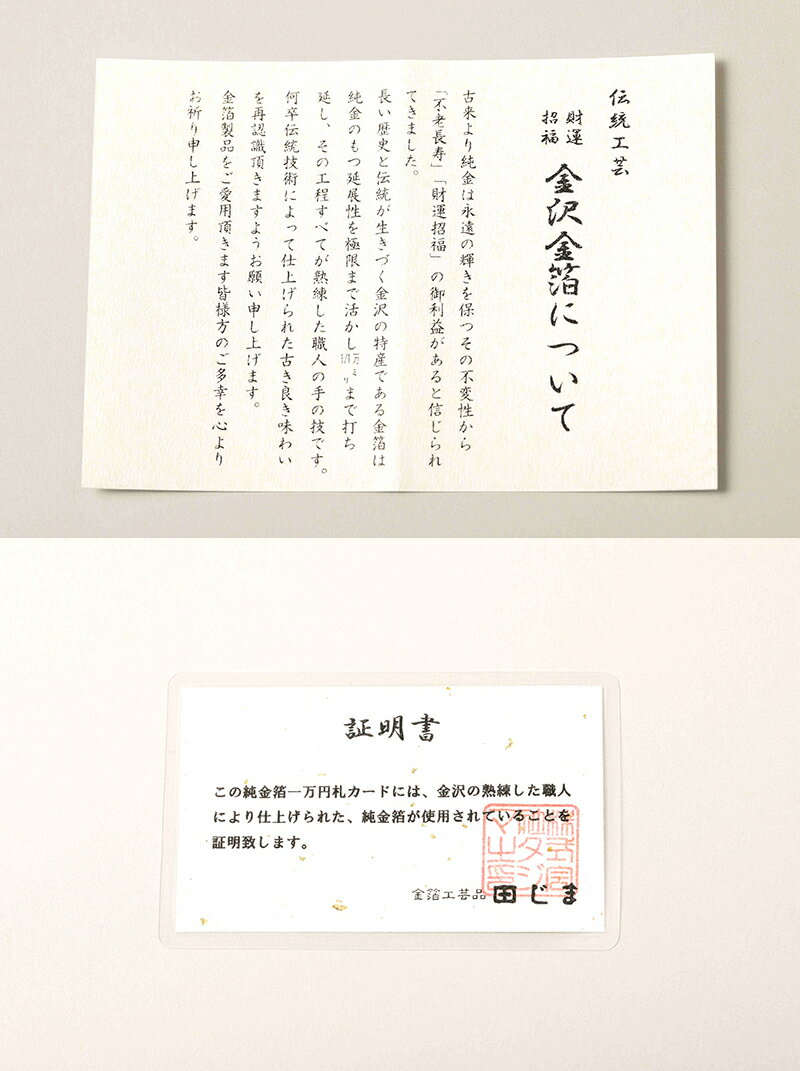 伝統工芸
財運
招福
金沢金箔について
古来より純金は永遠の輝きを保つその不変性から
「不老長寿」「財運招福」の御利益があると信じられ
てきました。
長い歴史と伝統が生きづく金沢の特産である金箔は
純金のもつ延展性を極限まで活かし1/1万ミリまで打ち
延し、その工程すべてが熟練した職人の手の技です。
何卒伝統技術によって仕上げられた古き良き味わい
を再認識頂きますようお願い申し上げます。
金箔製品をご愛用頂きます皆様方のご多幸を心より
お祈り申し上げます。
証明書
この純金箔一万円札カードには、金沢の熟練した職人
により仕上げられた、純金箔が使用されていることを
証明致します。
金箔工芸品 田じま